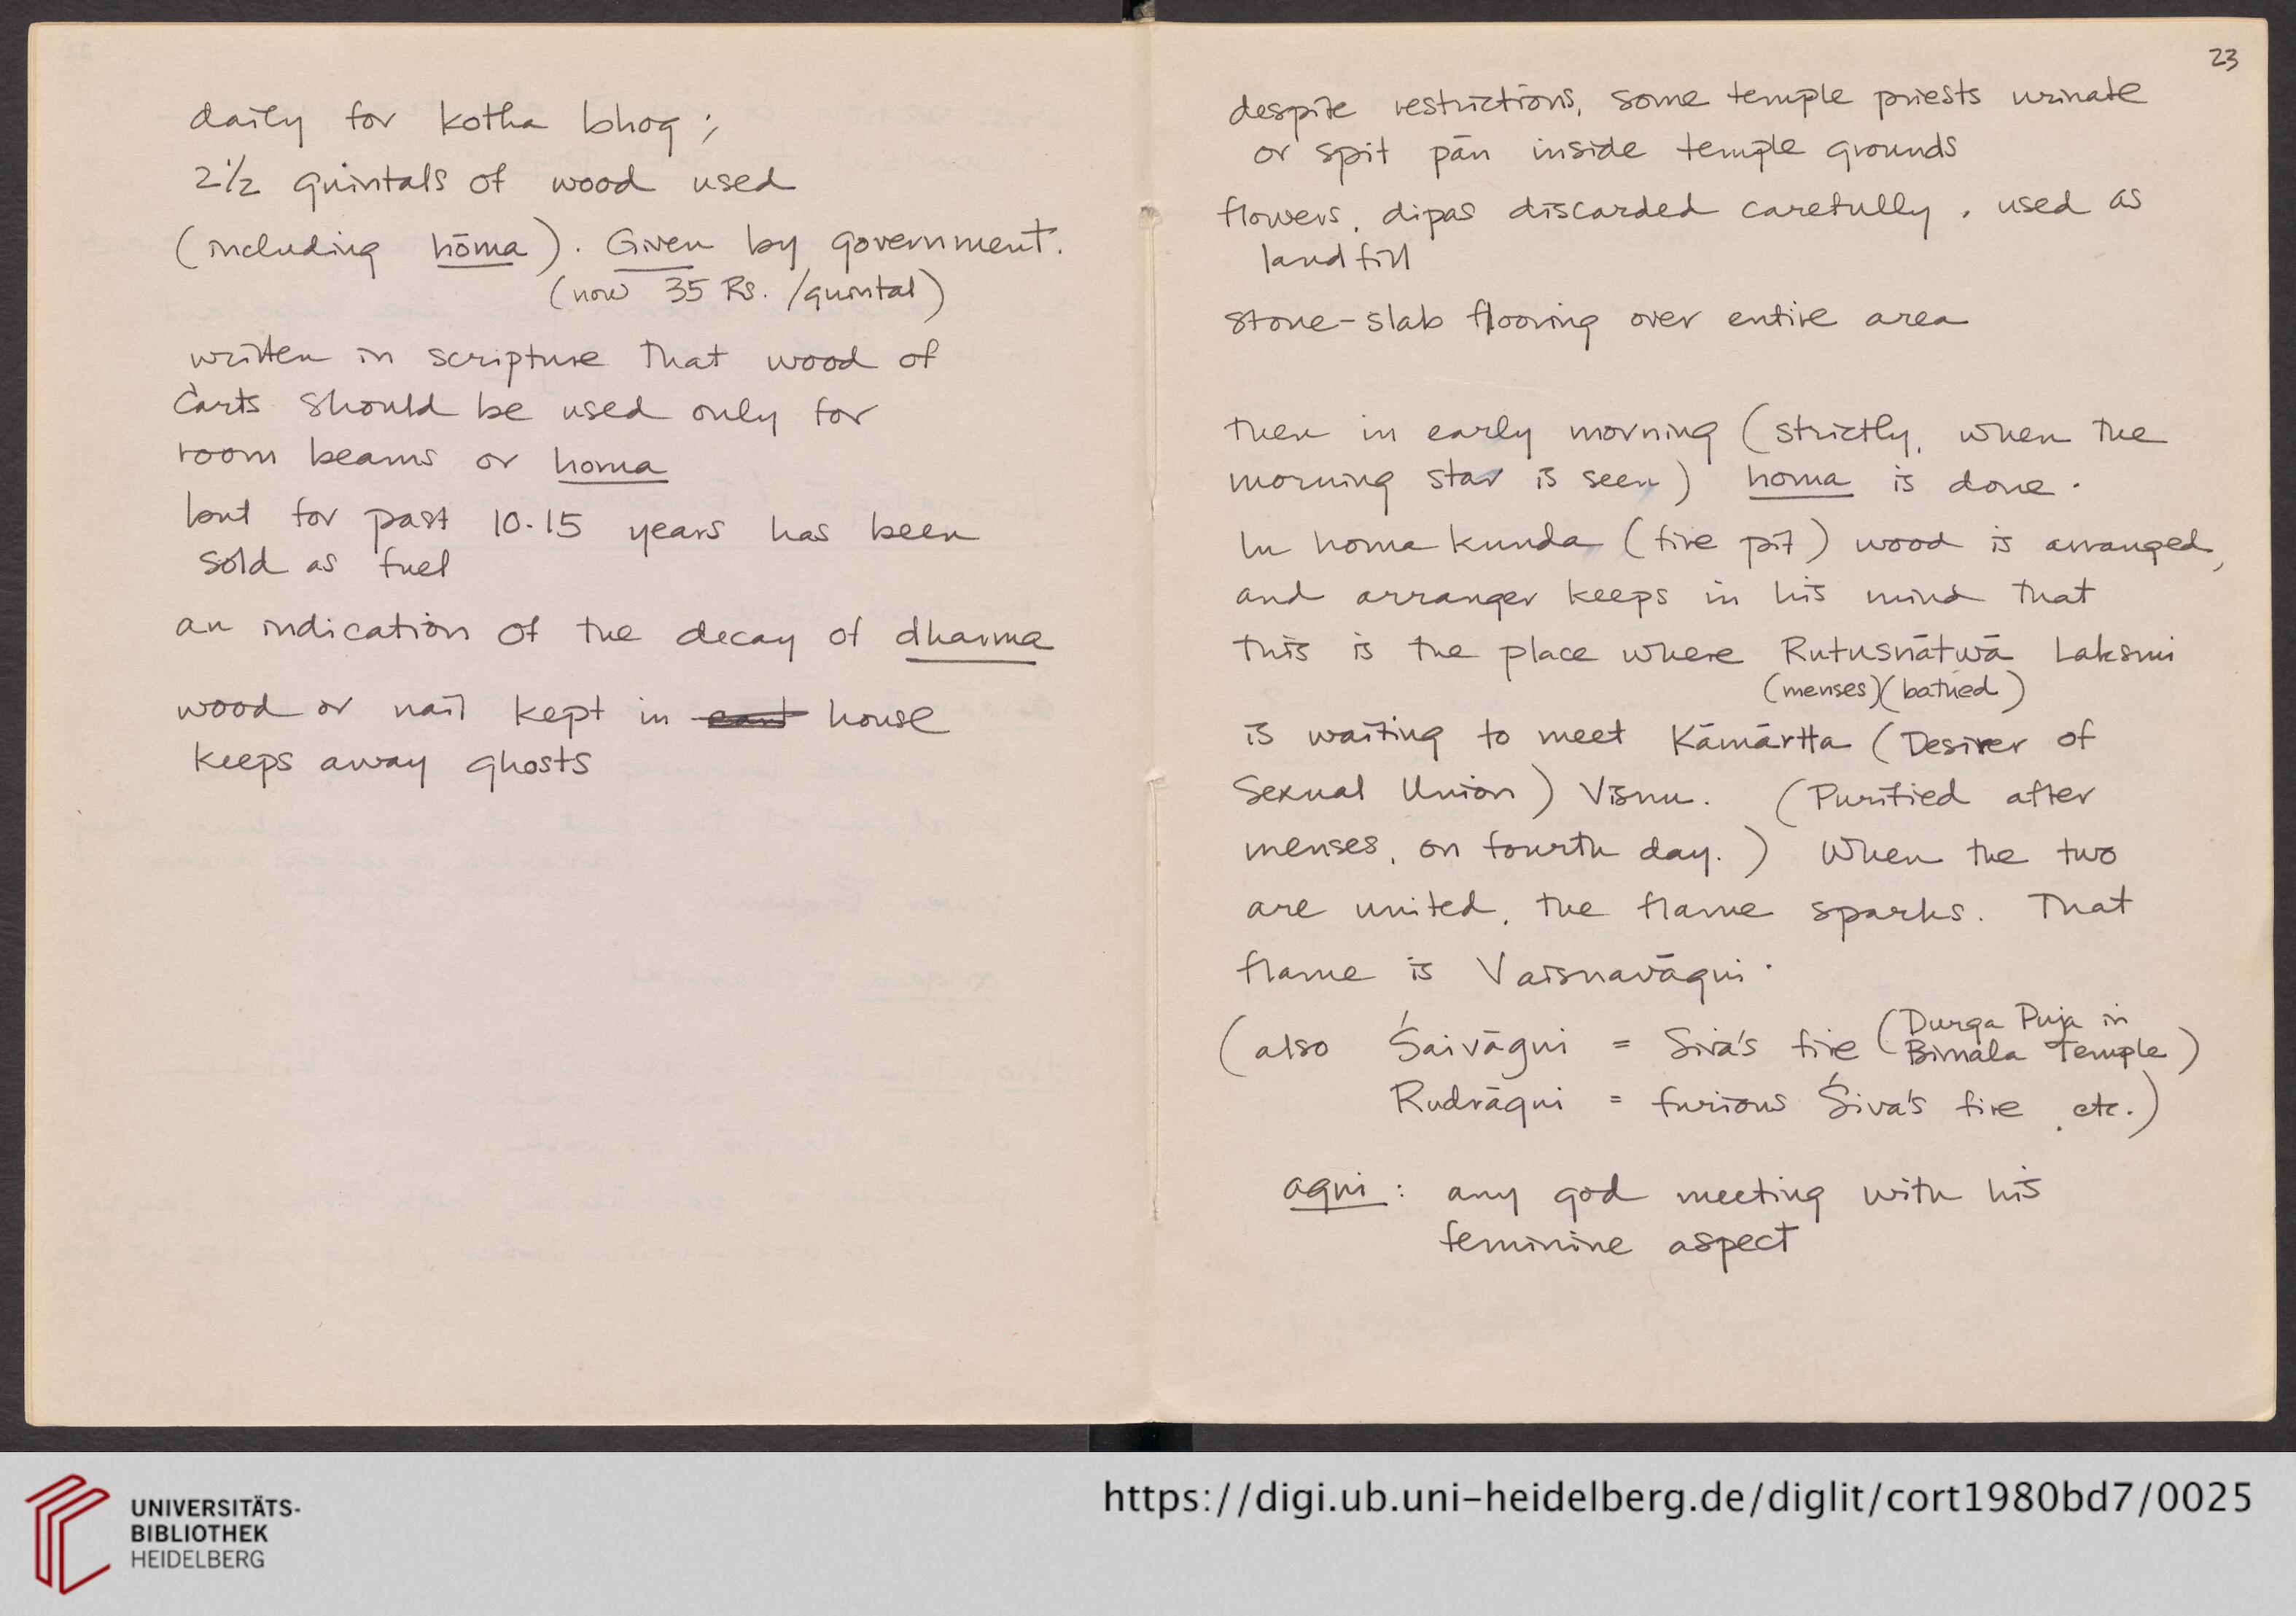 daily for kotha bhog ;
2½ quintals of wood used
(including hōma). Given by government.
(now 35 Rs. /quintal)
written in scripture that wood of
carts should be used only for
room beams or homa
but for past 10-15 years has been
sold as fuel
an indication of the decay of dharma
wood or nail kept in house
keeps away ghosts
23
despite restrictions, some temple priests urinate
or spit pān inside temple grounds
flowers, dipas discarded carefully, used as
landfill
stone-slab flooring over entire area
then in early morning (strictly, when the
morning star is seen) homa is done.
In homa kunda (fire pit) wood is arranged,
and arranger keeps in his mind that
this is the place where Rutusnātwā Laksmi
(menses)(bathed)
is waiting to meet Kāmārtta (Desirer of
Sexual Union) Visnu. (Purified after
menses, on fourth day.) When the two
are united, the flame sparks. That
flame is Vaisnavāgni.
(also Śaivāgni = Siva's fire (Durga Puja in
Bimala Temple)
Rudrāgni = furious Śiva's fire, etc.)
agni: any god meeting with his
feminine aspect
UNIVERSITÄTS-
BIBLIOTHEK
HEIDELBERG
https://digi.ub.uni-heidelberg.de/diglit/cort1980bd7/0025